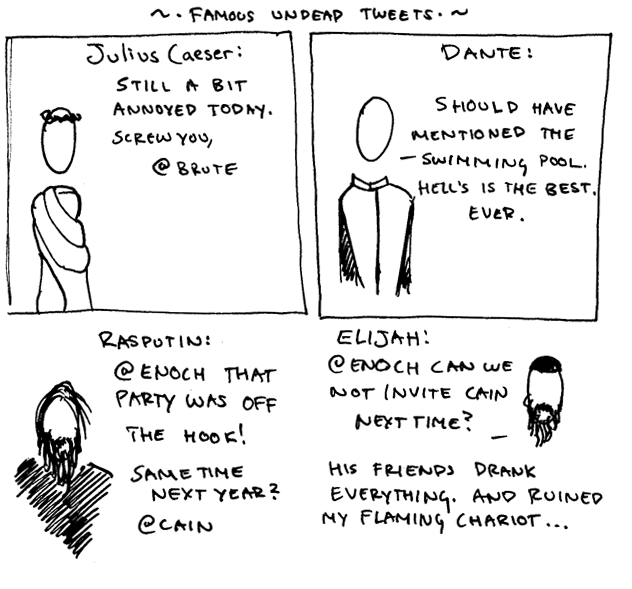 ~. FAMOUS UNDEAD TWEETS. ~
Julius Caeser:
STILL A BIT
ANNOYED TODAY.
SCREW YOU,
@BRUTE
DANTE:
SHOULD HAVE
MENTIONED THE
SWIMMING POOL.
HELL'S IS THE BEST.
EVER.
RASPUTIN:
@ENOCH THAT
PARTY WAS OFF
THE HOOK!
SAME TIME
NEXT YEAR?
@CAIN
ELIJAH:
@ENOCH CAN WE
NOT INVITE CAIN
NEXT TIME?
HIS FRIENDS DRANK
EVERYTHING. AND RUINED
MY FLAMING CHARIOT...